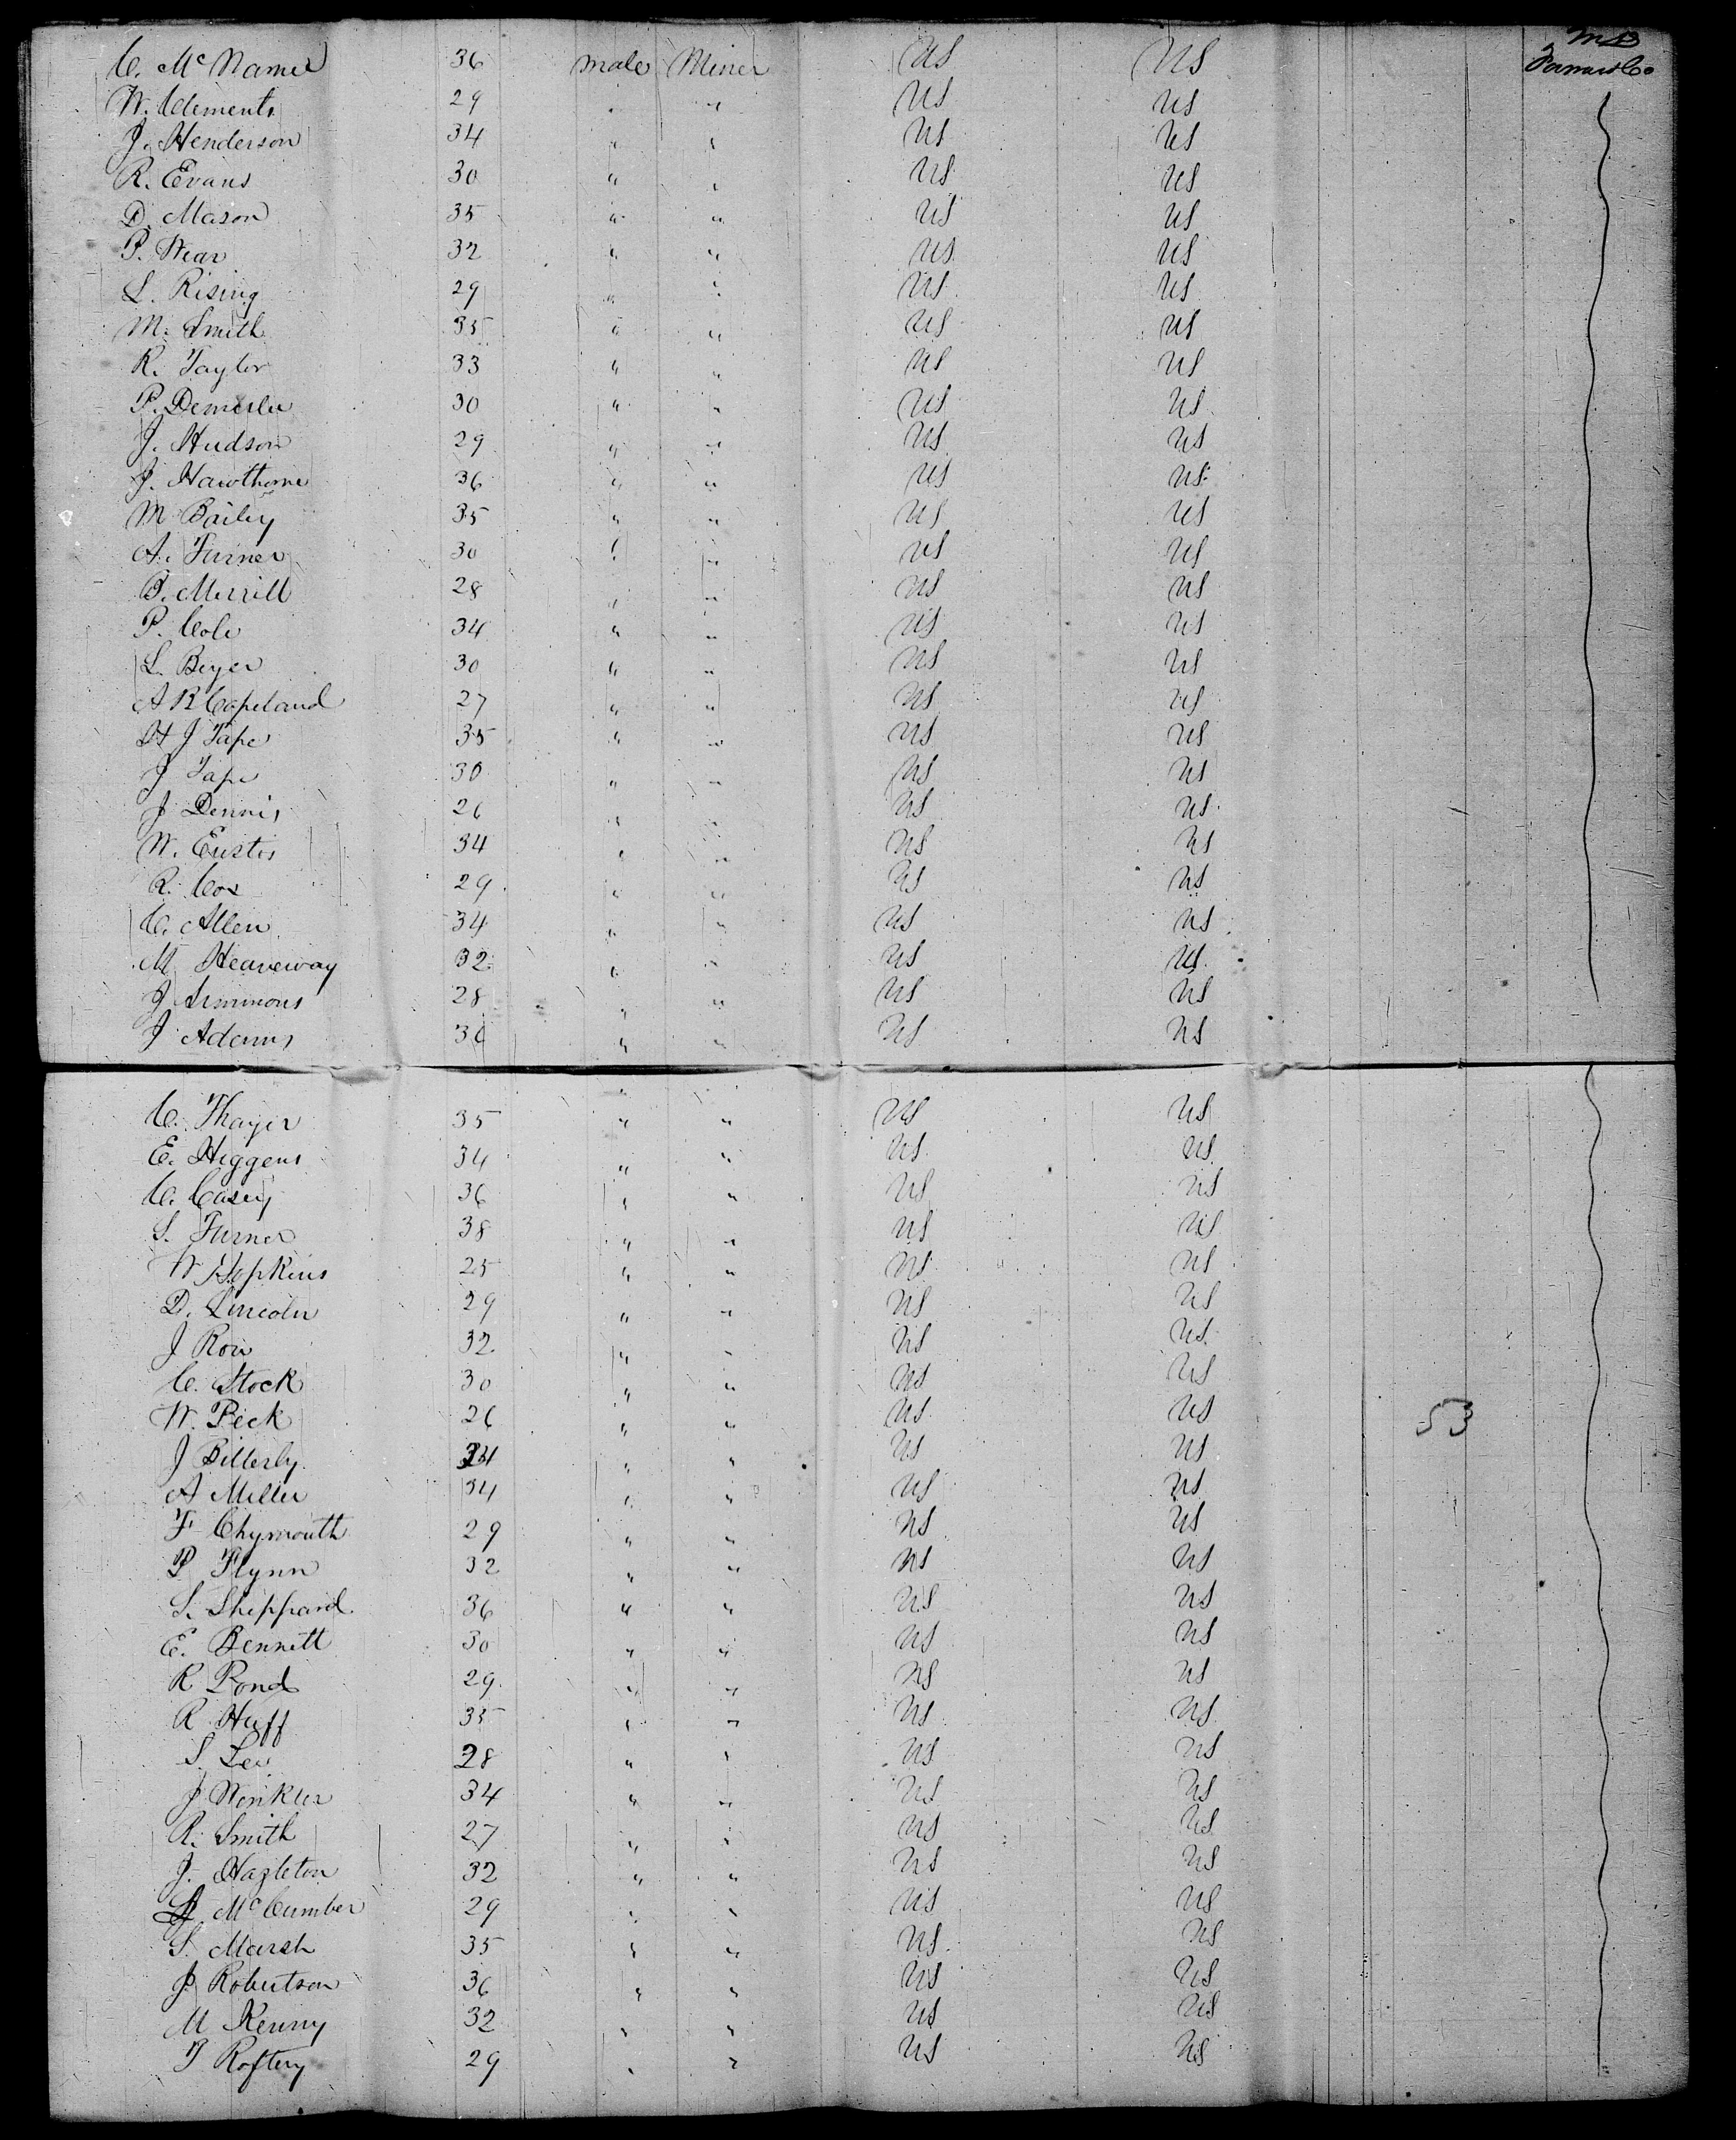 C. McNamee 36 male Miner US US M D Forward Co
W. Clements 29 " " US US
J. Henderson 34 " " US US
R. Evans 30 " " US US
D. Mason 35 " " US US
P. Wear 32 " " US US
L. Rising 29 " " US US
M. Smith 35 " " US US
R. Taylor 33 " " US US
P. 30 " " US US
J. Hudson 29 " " US US
J. Hawthorne 36 " " US US
M Bailey 35 " " US US
A. Turner 30 " " US US
B. Merrill 28 " " US US
P. Cole 34 " " US US
L. Beyer 30 " " US US
A R Copeland 27 " " US US
H J Tape 35 " " US US
J Tape 30 " " US US
J Dennis 26 " " US US
W. Eustis 34 " " US US
R. Cox 29 " " US US
C. Allen 34 " " US US
M Heaveway 32 " " US US
J Simmons 28 " " US US
J Adams 36 " " US US
C. Thayer 35 " " US US
E. Higgens 34 " " US US
C. Casey 36 " " US US
S. Turner 38 " " US US
W Hopkins 25 " " US US
D. Lincoln 29 " " US US
J Row 32 " " US US
C. Stock 30 " " US US
W. Peck 26 " " US US 53
J Billerly 34 " " US US
A Miller 34 " " US US
F Chymouth 29 " " US US
P Flynn 32 " " US US
S. Sheppard 36 " " US US
E. Bennett 30 " " US US
R Pond 29 " " US US
R Huff 35 " " US US
S. Lee 28 " " US US
J Winkler 34 " " US US
R. Smith 27 " " US US
J. Hazleton 32 " " US US
McCumber 29 " " US US
S. Marsh 35 " " US US
J. Robertson 36 " " US US
M Kenny 32 " " US US
T Raftery 29 " " US US